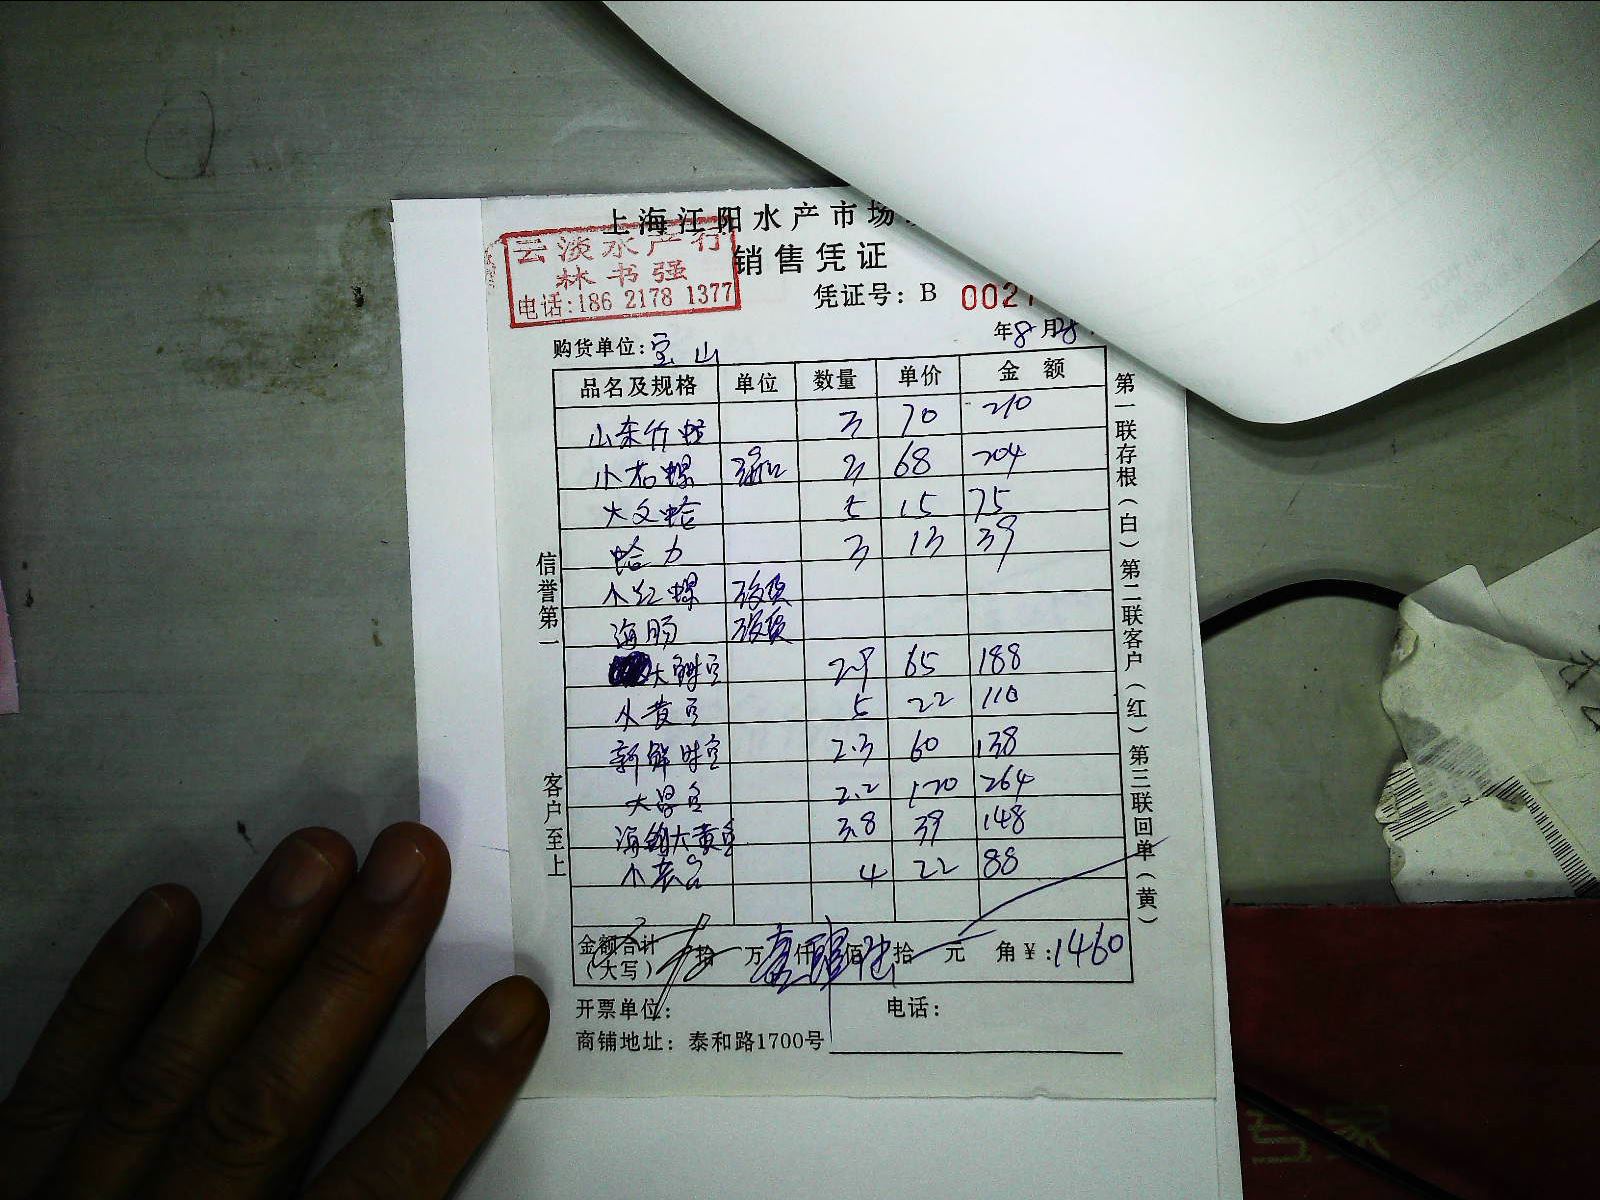 上海江阳水产市场
销售凭证
云淡水产行
林书强
电话:186 2178 1377
凭证号: B 002
年8月28
购货单位:宝山
品名及规格 单位 数量 单价 金 额
山东竹蛏 3 70 210
小花螺 3 68 204
大文蛤 5 15 75
蛤力 3 13 39
小红螺
海肠
大 2.9 65 188
小黄 5 22 110
新鲜 2.3 60 138
大 2.2 120 264
海 大黄 3.8 39 148
小 4 22 88
金额合计
(大写) 拾 万 壹仟 肆佰 陆拾 元 角 ¥:1460
开票单位: 电话:
商铺地址: 泰和路1700号
信誉第一
客户至上
第一联存根(白)第二联客户(红)第三联回单(黄)
专家